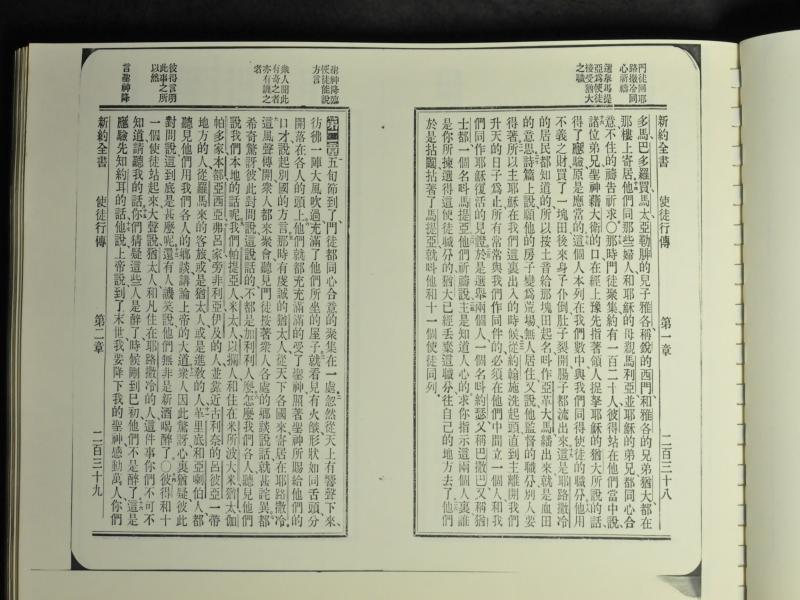 門徒回耶
路撒冷同
心祈禱
選舉馬提
亞爲使徒
接受猶大
之職
新約全書 使徒行傳 第一章 二百三十八
多馬巴多羅買馬太亞勒腓的兒子雅各稱銳的西門和雅各的兄弟猶大都在
那樓上寄居他們同那些婦人和耶穌的母親馬利亞並耶穌的弟兄都同心合
意不住的禱告祈求○那時門徒聚集約有一百二十人彼得站在他們當中說
諸位弟兄聖神藉大衛的口在經上豫先指著領人捉拏耶穌的猶大所說的話
得了應驗原是應當的這個人本列在我們數中與我們同得使徒的職分他用
不義之財買了一塊田後來身子仆倒肚子裂開腸子都流出來這是耶路撒冷
的居民都知道的所以按土音給那塊田起名叫作亞革大馬繙出來就是血田
的意思詩篇上說願他的房子變爲荒場無人居住又說他監督的職分別人要
得著所以主耶穌在我們這裏出入的時候從約翰施洗起頭直到主離開我們
升天的日子爲止所有常常與我們作同伴的必須在他們中間立一個人和我
們同作耶穌復活的見證於是選舉兩個人一個名叫約瑟又稱巴撒巴又稱猶
士都一個名叫馬提亞他們祈禱說主是知道人心的求你指示這兩個人裏誰
是你所揀選得這使徒職分的猶大已經丟棄這職分往自己的地方去了他們
於是拈鬮拈著了馬提亞就叫他和十一個使徒同列
聖神降臨
使徒能說
方言
衆人聞此
有奇之者
亦有譏之
者
彼得言明
此事之所
以然
言聖神降
第二章 五旬節到了門徒都同心合意的聚集在一處忽然從天上有響聲下來
彷彿一陣大風吹過充滿了他們所坐的屋子就看見有火燄形狀如同舌頭分
開落在各人的頭上他們就都充充滿滿的受了聖神照著聖神所賜給他們的
口才說起別國的方言那時有虔誠的猶太人從天下各國來寄居在耶路撒冷
這風聲傳開衆人都來聚會聽見門徒按著衆人各處的鄉談說話就甚詫異都
希奇驚訝彼此對問說這說話的不都是加利利人麼怎麼我們各人聽見他們
說我們本地的話呢我們帕提亞人米太人以攔人和住在米所波大米猶太伽
帕多家本都亞西亞弗呂家旁非利亞伊及的人並靠近古利奈的呂彼亞一帶
地方的人從羅馬來的客旅或是猶太人或是進敎的人革里底和亞喇伯人都
聽見他們用我們各人的鄉談講論上帝的大道衆人因此驚訝心裏猶疑彼此
對問說這到底是甚麼呢還有人譏笑說他們無非是新酒喝醉了○彼得和十
一個使徒站起來大聲說猶太人和凡住在耶路撒冷的人這件事你們不可不
知道請聽我的話你們猜疑這些人是醉了時候剛到巳初他們不是醉了這是
應驗先知約耳的話他說上帝說到了末世我要降下我的聖神感動萬人你們
新約全書 使徒行傳 第二章 二百三十九